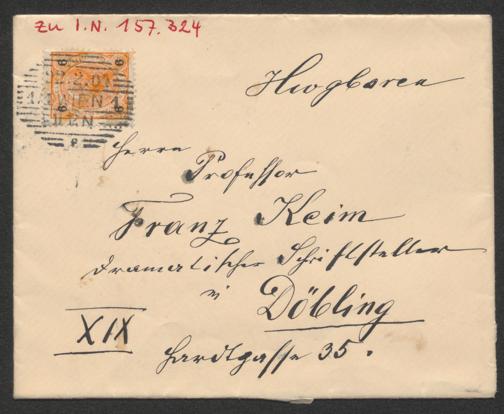 zu I.N. 157.324
6 6
22.2.01
WIEN 1
6 6
Hwgboren
Herrn
Professor
Franz Keim
dramatischer Schriftsteller
in
Döbling
XIX
Hardtgasse 35.